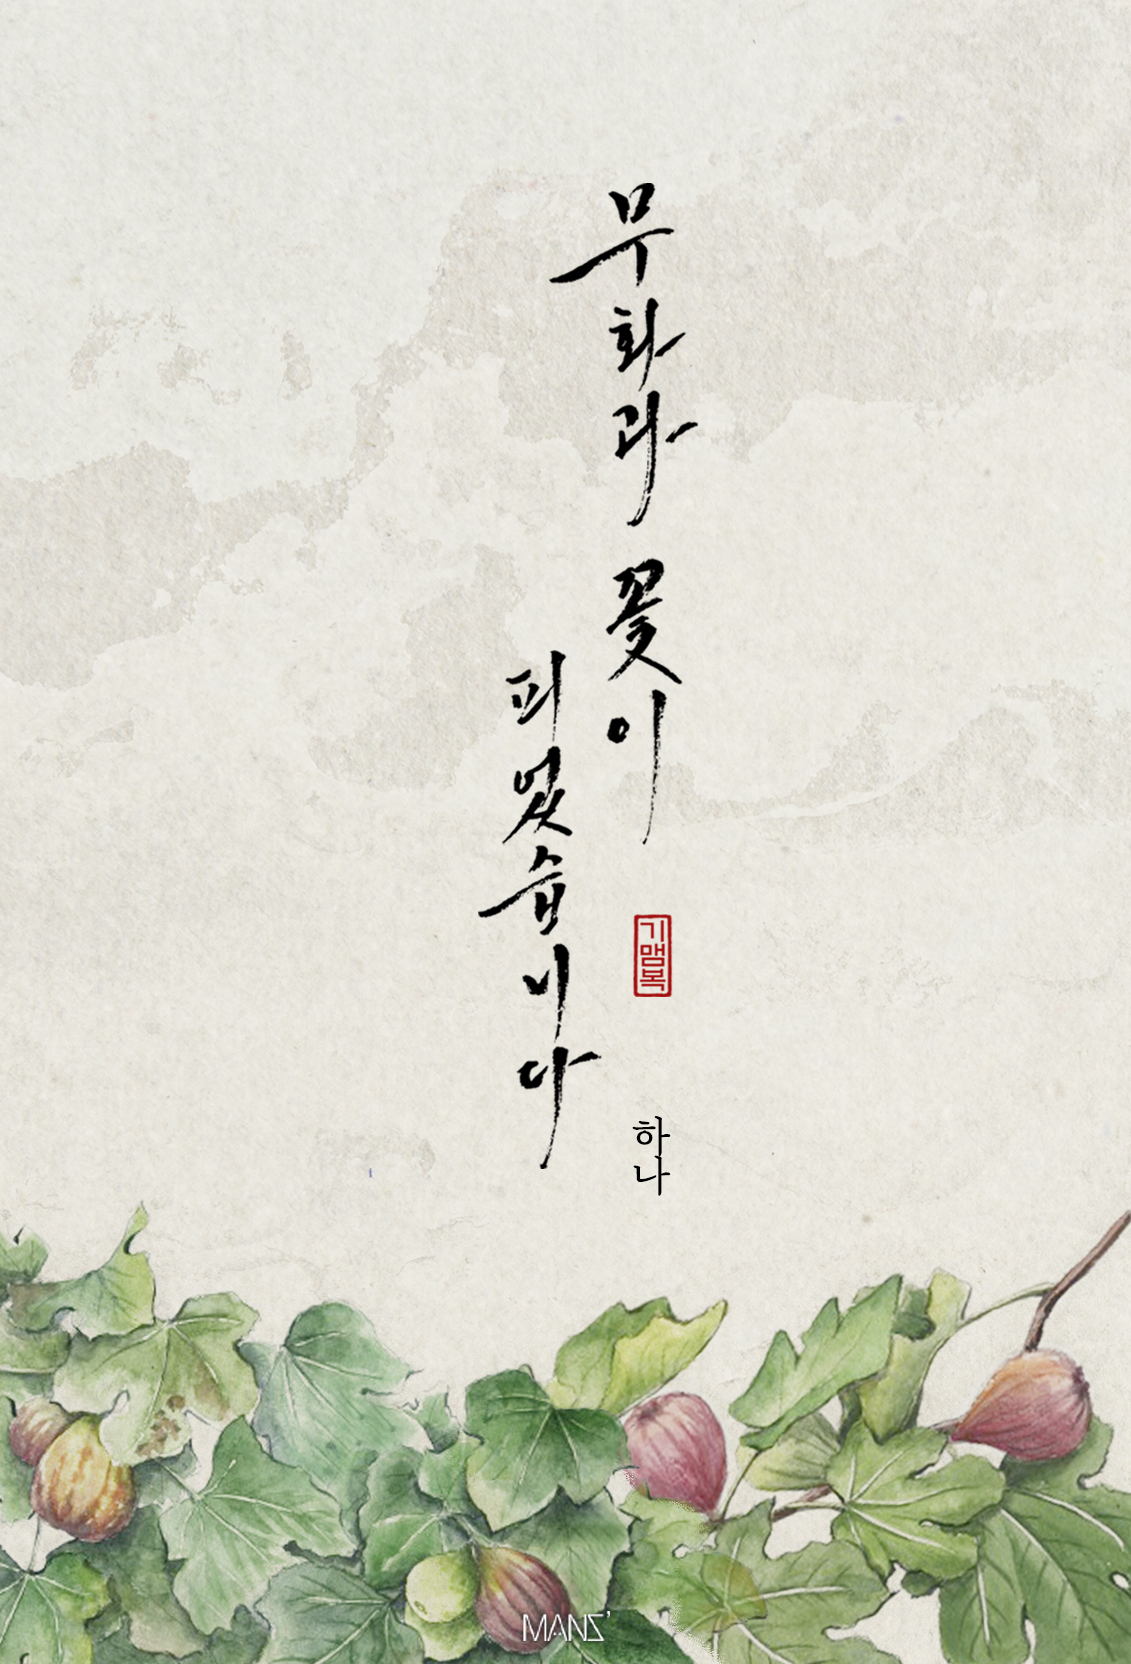 무화과 꽃이
피었습니다
기맴복
하나
MANS'